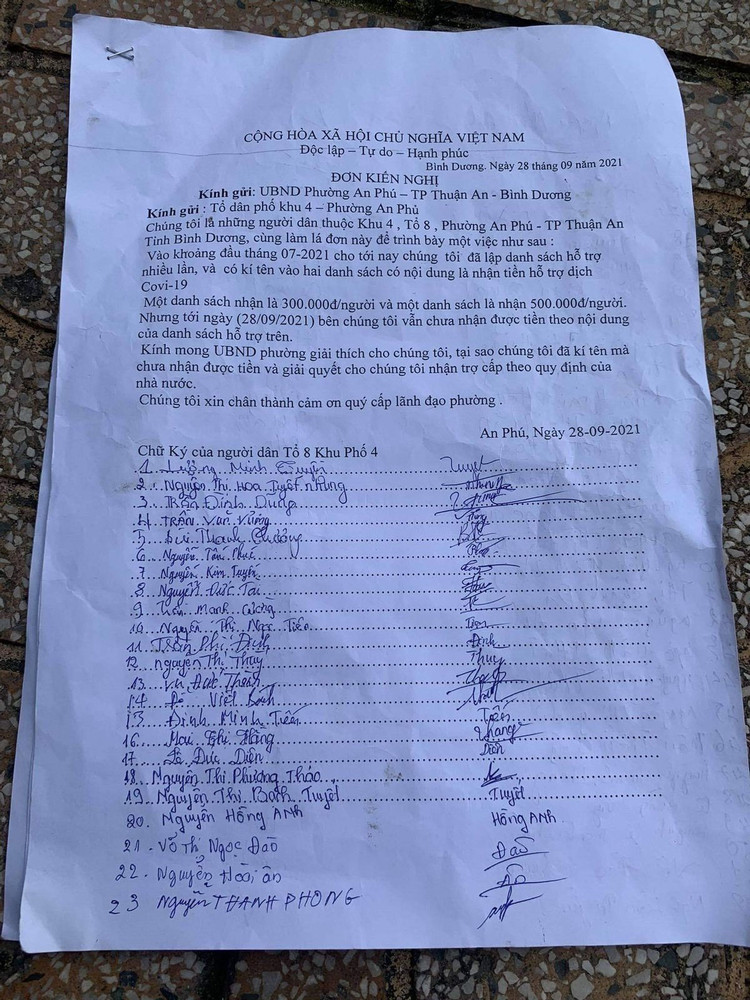 CỘNG HÒA XÃ HỘI CHỦ NGHĨA VIỆT NAM
Độc lập – Tự do – Hạnh phúc
Bình Dương. Ngày 28 tháng 09 năm 2021
ĐƠN KIẾN NGHỊ
Kính gửi: UBND Phường An Phú – TP Thuận An - Bình Dương
Kính gửi : Tổ dân phố khu 4 – Phường An Phú
Chúng tôi là những người dân thuộc Khu 4 , Tổ 8 , Phường An Phú - TP Thuận An
Tỉnh Bình Dương, cùng làm lá đơn này để trình bày một việc như sau :
Vào khoảng đầu tháng 07-2021 cho tới nay chúng tôi đã lập danh sách hỗ trợ
nhiều lần, và có kí tên vào hai danh sách có nội dung là nhận tiền hỗ trợ dịch
Covi-19
Một danh sách nhận là 300.000đ/người và một danh sách là nhận 500.000đ/người.
Nhưng tới ngày (28/09/2021) bên chúng tôi vẫn chưa nhận được tiền theo nội dung
của danh sách hỗ trợ trên.
Kính mong UBND phường giải thích cho chúng tôi, tại sao chúng tôi đã kí tên mà
chưa nhận được tiền và giải quyết cho chúng tôi nhận trợ cấp theo quy định của
nhà nước.
Chúng tôi xin chân thành cảm ơn quý cấp lãnh đạo phường .
An Phú, Ngày 28-09-2021
Chữ Ký của người dân Tổ 8 Khu Phố 4
1 Minh
2 Nguyễn Thị Hoa Tuyết Nhung
3 Trần Đình Dũng
4 TRẦN Văn Vững
5 Bùi Thanh
6 Nguyễn Tấn
7 Nguyễn Kim Tuyến
8 Nguyễn Đức Tai
9 Mạnh Cường
10 Nguyễn Thị Ngọc
11 Trần Phi Định Định
12 Nguyễn Thị Thủy Thuy
13 Vũ Đức
14 Việt
15 Đinh Minh Tiến Tiến
16 Mai Thị
17 Lê Đức Diện Diện
18. Nguyễn Thị Phương Thảo
19 Nguyễn Thị Bạch Tuyết Tuyết
20. Nguyễn Hồng Anh HồNG ANH
21. Võ Thị Ngọc Đào Đào
22. Nguyễn Hoài ân Ân
23 Nguyễn THANH PHONG